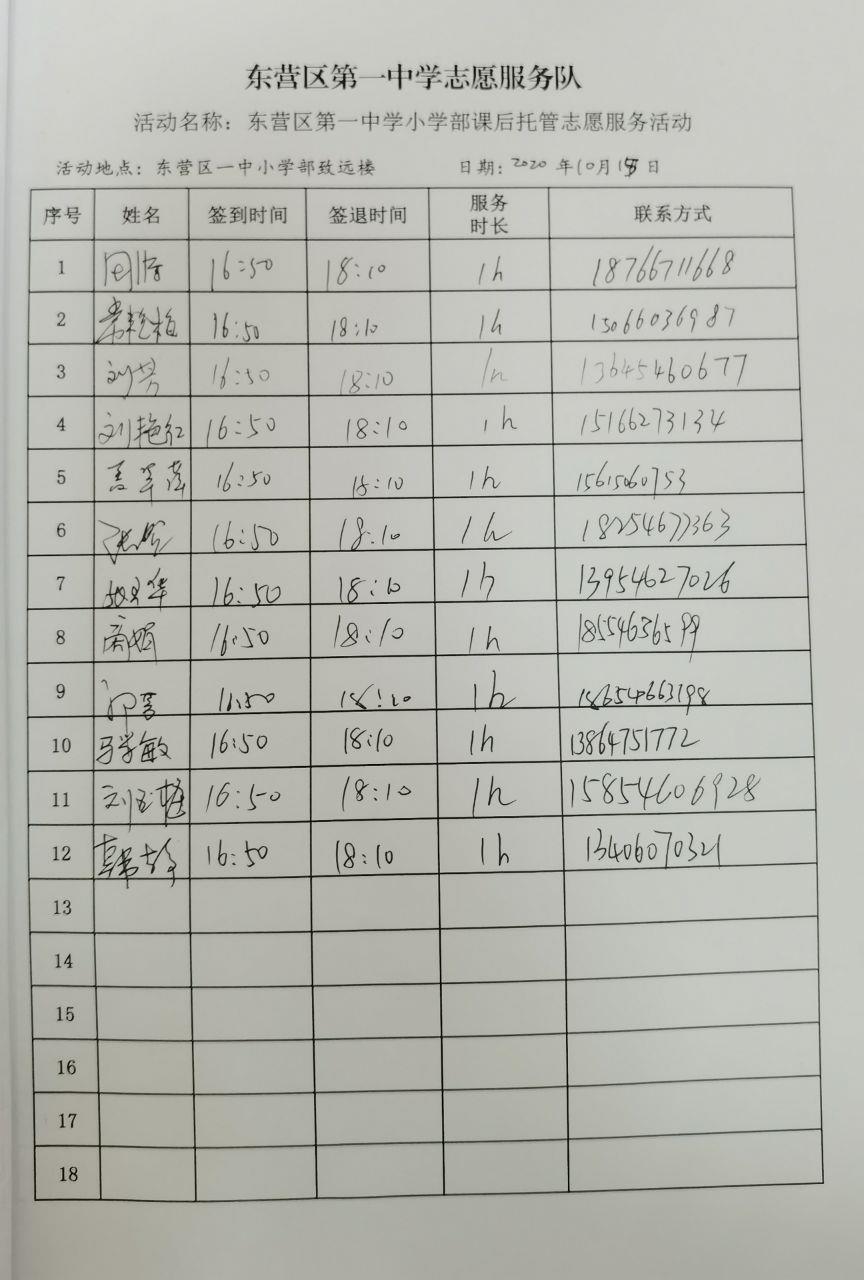 东营区第一中学志愿服务队
活动名称：东营区第一中学小学部课后托管志愿服务活动
活动地点：东营区一中小学部致远楼 日期：2020 年10月 日
序号 姓名 签到时间 签退时间 服务时长 联系方式
1 16:50 18:10 1h 18766711668
2 16:50 18:10 1h 15066036987
3 刘芳 16:50 18:10 1h 13645460677
4 刘艳红 16:50 18:10 1h 15166273134
5 16:50 18:10 1h 15615060753
6 16:50 18:10 1h 18254677363
7 16:50 18:10 1h 13954627026
8 16:50 18:10 1h 18554636599
9 16:50 18:10 1h
10 马学敏 16:50 18:10 1h 13864751772
11 16:50 18:10 1h 15854606928
12 16:50 18:10 1h 13406070321
13
14
15
16
17
18